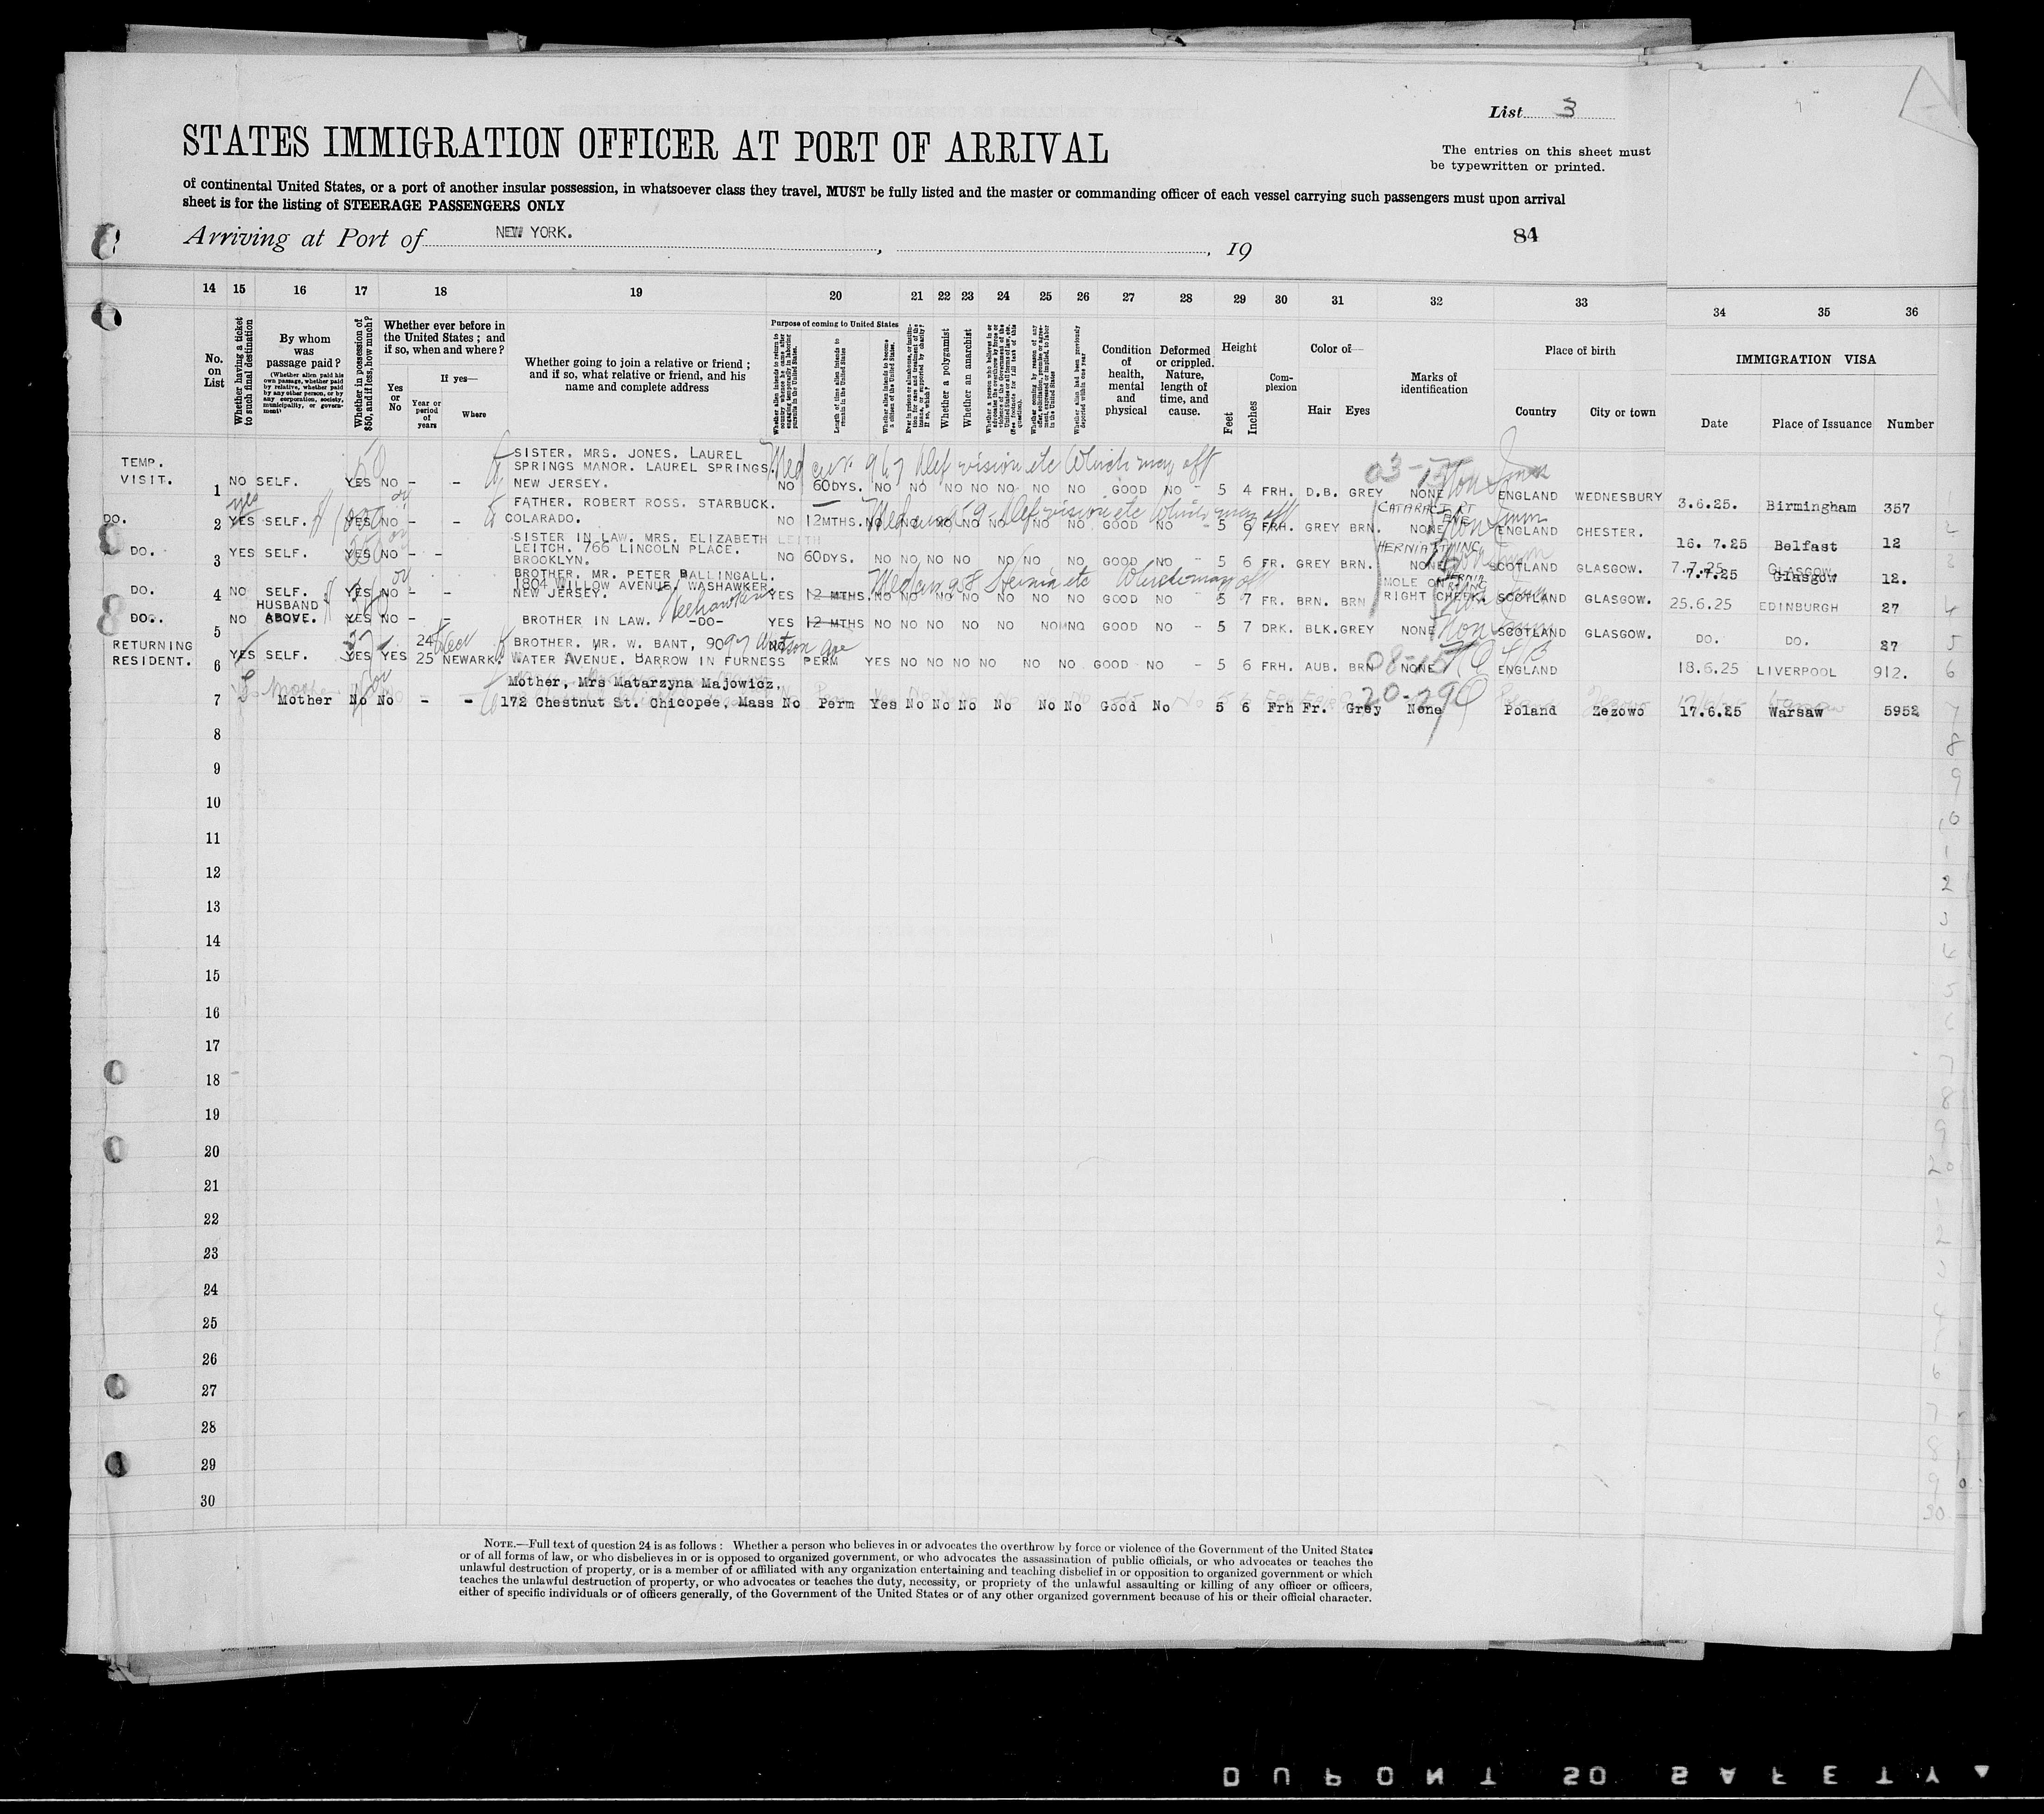 List 3
STATES IMMIGRATION OFFICER AT PORT OF ARRIVAL
The entries on this sheet must
be typewritten or printed.
of continental United States, or a port of another insular possession, in whatsoever class they travel, MUST be fully listed and the master or commanding officer of each vessel carrying such passengers must upon arrival
sheet is for the listing of STEERAGE PASSENGERS ONLY
Arriving at Port of NEW YORK. , , 19
84
14 15 16 17 18 19 20 21 22 23 24 25 26 27 28 29 30 31 32 33 34 35 36
No. on List
Whether having a ticket to such final destination
By whom was passage paid?
(Whether alien paid his own passage, whether paid by relative, whether paid by any other person, or by any corporation, society, municipality, or government)
Whether in possession of $50, and if less, how much?
Whether ever before in the United States; and if so, when and where?
Yes or No
If yes—
Year or period of years
Where
Whether going to join a relative or friend; and if so, what relative or friend, and his name and complete address
Purpose of coming to United States
Whether alien intends to return to country whence he came after engaging temporarily in laboring pursuits in the United States.
Length of time alien intends to remain in the United States
Whether alien intends to become a citizen of the United States.
Whether a polygamist
Whether an anarchist
Condition of health, mental and physical
Deformed or crippled. Nature, length of time, and cause.
Height
Feet
Inches
Complexion
Color of—
Hair
Eyes
Marks of identification
Place of birth
Country
City or town
IMMIGRATION VISA
Date
Place of Issuance
Number
TEMP. VISIT. 1 NO SELF. YES NO - - SISTER. MRS. JONES. LAUREL
SPRINGS MANOR. LAUREL SPRINGS.
NEW JERSEY. NO 60DYS. NO NO NO NO NO NO NO GOOD NO - 5 4 FRH. D.B. GREY NONE ENGLAND WEDNESBURY 3.6.25. Birmingham 357
DO. 2 YES SELF. YES NO - - FATHER. ROBERT ROSS. STARBUCK.
COLARADO. NO 12MTHS. NO NO NO NO NO NO NO GOOD NO - 5 6 FRH. GREY BRN. NONE ENGLAND CHESTER. 16. 7.25 Belfast 12
CATARACT RT EYE
DO. 3 YES SELF. YES NO - - SISTER IN LAW. MRS. ELIZABETH LEITH
LEITCH. 766 LINCOLN PLACE.
BROOKLYN. NO 60DYS. NO NO NO NO NO NO NO GOOD NO - 5 6 FR. GREY BRN. NONE SCOTLAND GLASGOW. 7.7.25 Glasgow 12.
DO. 4 NO SELF. YES NO - - BROTHER. MR. PETER BALLINGALL.
1804 WILLOW AVENUE. WASHAWKER
NEW JERSEY. Weehawken YES 12 MTHS. NO NO NO NO NO NO NO GOOD NO - 5 7 FR. BRN. BRN MOLE ON RIGHT CHEEK. SCOTLAND GLASGOW. 25.6.25 EDINBURGH 27
DO. 5 NO HUSBAND ABOVE. YES NO - - BROTHER IN LAW. -DO- YES 12 MTHS NO NO NO NO NO NO NO GOOD NO - 5 7 DRK. BLK. GREY NONE SCOTLAND GLASGOW. DO. DO. 27
RETURNING RESIDENT. 6 YES SELF. YES YES 24 25 NEWARK. BROTHER. MR. W. BANT, 90
WATER AVENUE. BARROW IN FURNESS PERM YES NO NO NO NO NO NO GOOD NO - 5 6 FRH. AUB. BRN NONE ENGLAND 18.6.25 LIVERPOOL 912.
7 Mother No No - - Mother, Mrs Matarzyna Majowicz.
172 Chestnut St. Chicopee, Mass No Perm Yes No No No No No No Good No 5 6 Frh Fr. Grey None Poland Zezowo 17.6.25 Warsaw 5952
8
9
10
11
12
13
14
15
16
17
18
19
20
21
22
23
24
25
26
27
28
29
30
NOTE.—Full text of question 24 is as follows: Whether a person who believes in or advocates the overthrow by force or violence of the Government of the United States
or of all forms of law, or who disbelieves in or is opposed to organized government, or who advocates the assassination of public officials, or who advocates or teaches the
unlawful destruction of property, or is a member of or affiliated with any organization entertaining and teaching disbelief in or opposition to organized government or which
teaches the unlawful destruction of property, or who advocates or teaches the duty, necessity, or propriety of the unlawful assaulting or killing of any officer or officers,
either of specific individuals or of officers generally, of the Government of the United States or of any other organized government because of his or their official character.
DUPONT 50 SAFETY